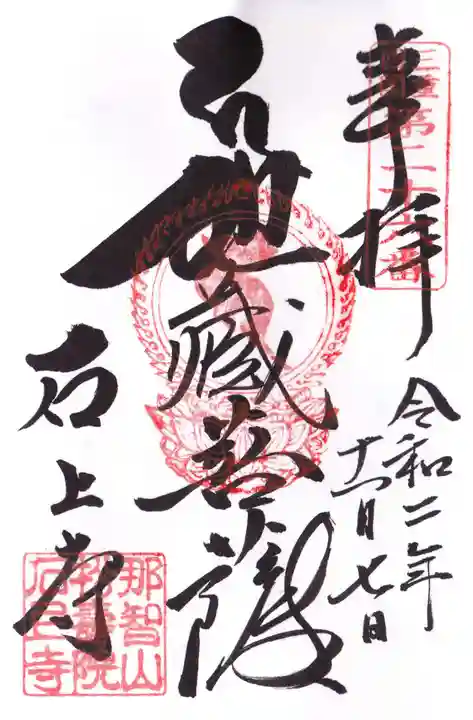 奉拝
第二十六番
令和二年
十一月七日
地藏菩薩
石上寺
那智山
松壽院
石上寺